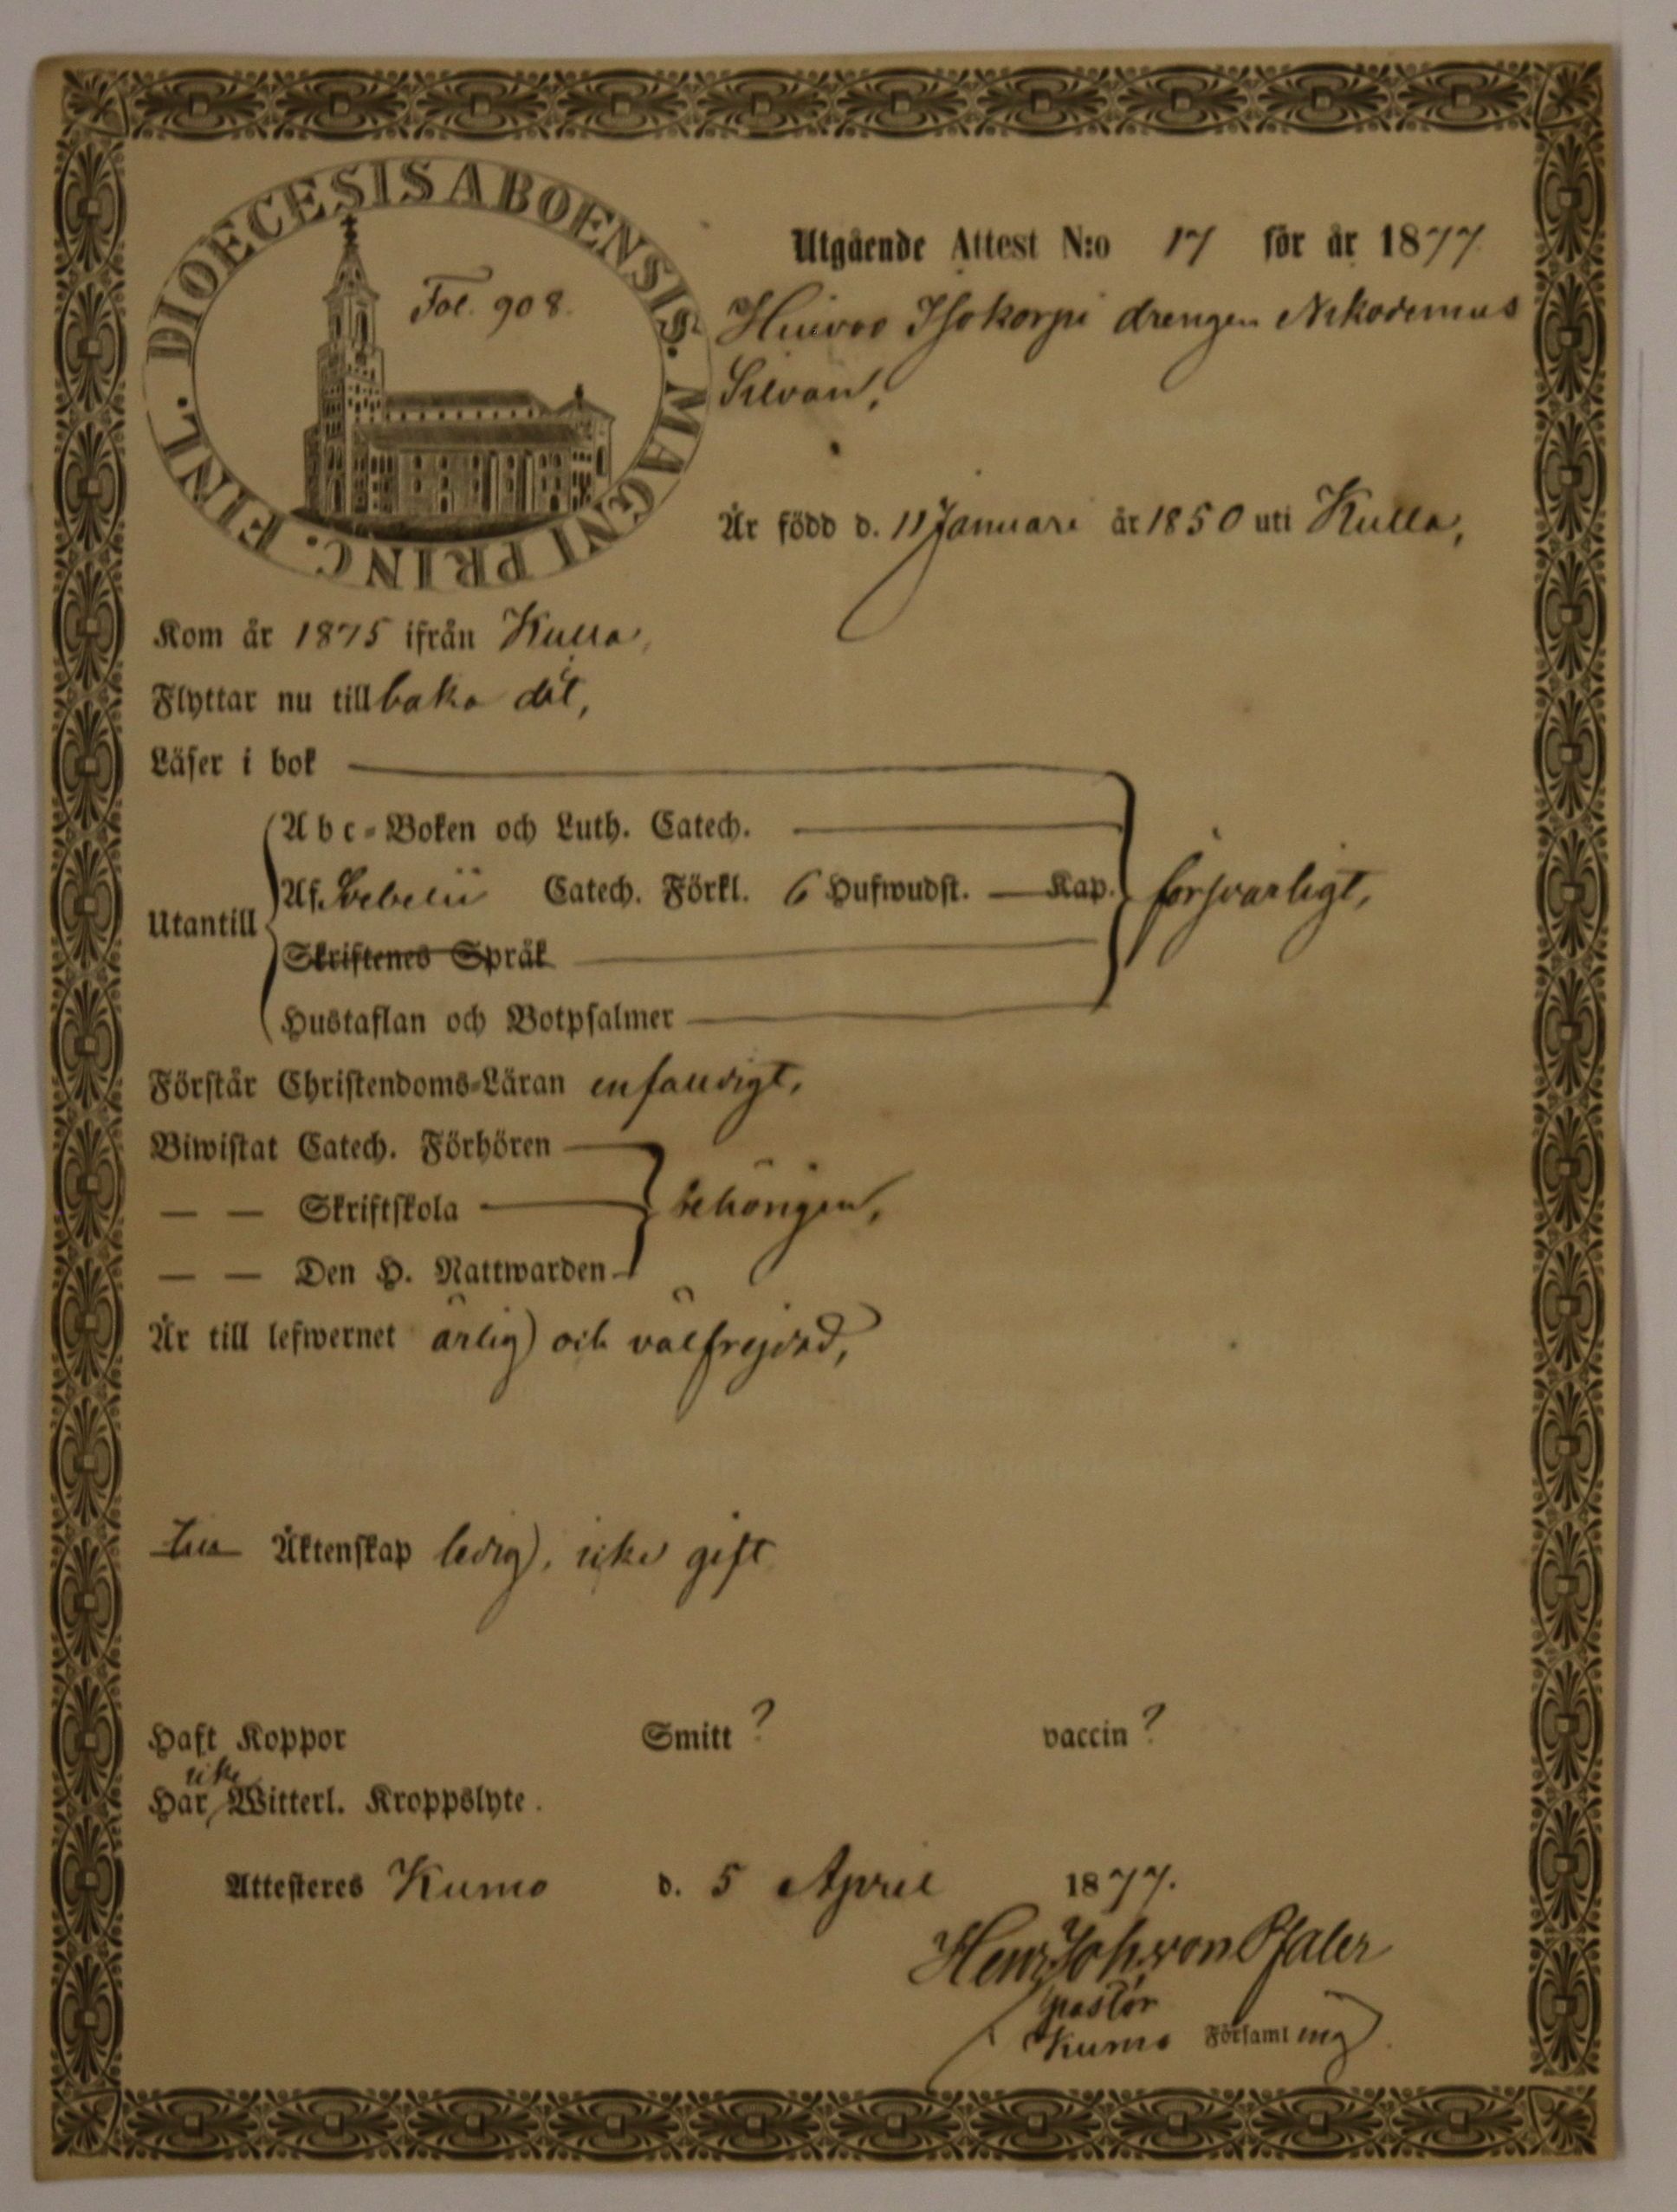 DIOECESIS ABOENSIS. MAGNI PRINC. FINL.
Fol. 908.
Utgående Attest N:o 17 för år 1877
Huivoo Isokorpi drengen Nikodemus
Silvan,
Är född d. 11 Januari år 1850 uti Kulla,
Kom år 1875 ifrån Kulla,
Flyttar nu tillbaka dit,
Läser i bok
Abc-Boken och Luth. Catech.
Utantill
Af Svebelii Catech. Förkl. 6 Hufwudst. — Kap. försvarligt,
Skriftenes Språk
Hustaflan och Botpsalmer
Förstår Christendoms-Läran enfaldigt,
Biwistat Catech. Förhören
— — Skriftskola behörigen,
— — Den H. Nattwarden
Är till lefwernet ärlig och välfrejdad,
Äktenskap ledig, icke gift
Haft Koppor Smitt ? vaccin ?
icke
Har Witterl. Kroppslyte.
Attesteres Kumo d. 5 April 1877.
Henr Joh von Pfaler
pastor
Kumo Församling